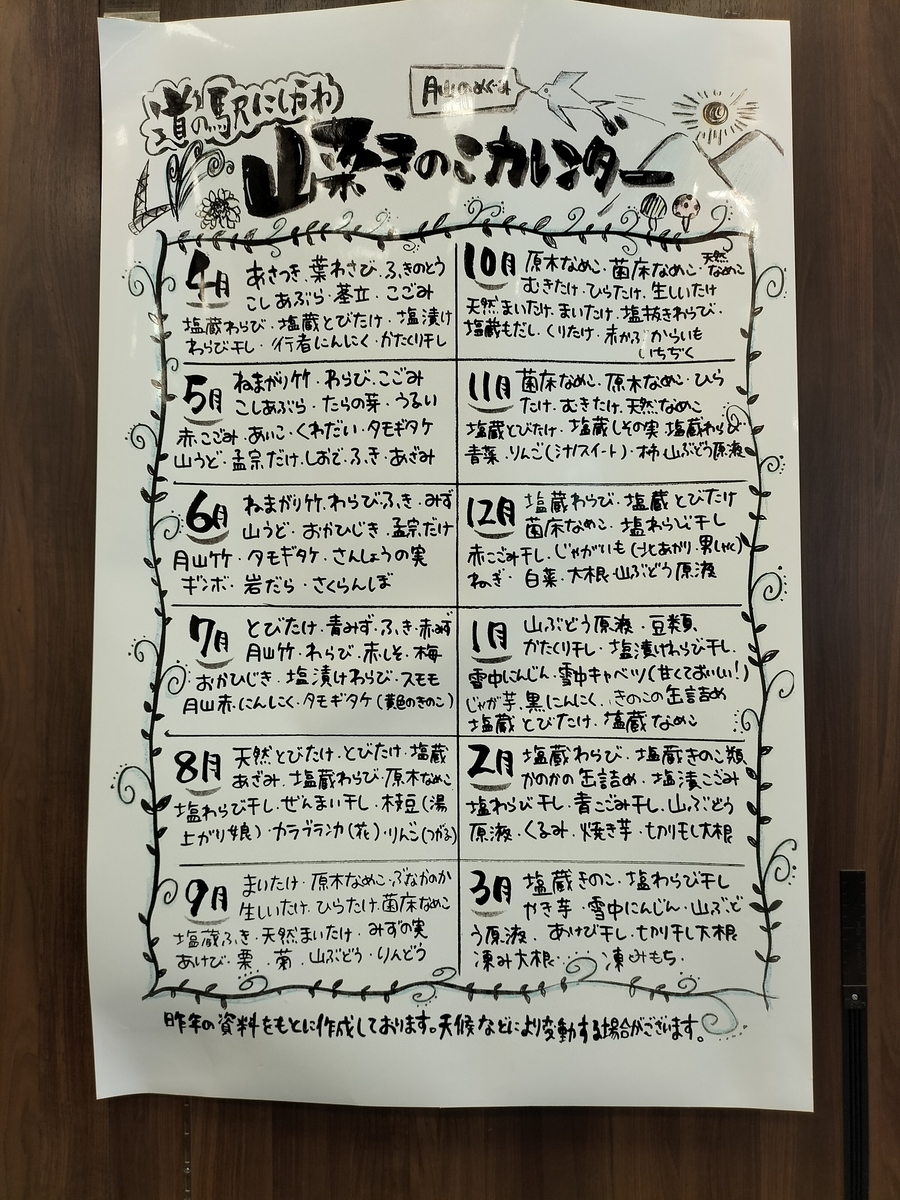 道の駅にしかわ
月山のめぐみ
山菜きのこカレンダー
4月
あさつき・葉わさび・ふきのとう
こしあぶら・茎立・こごみ
塩蔵わらび・塩蔵とびたけ・塩漬け
わらび干し・行者にんにく・かたくり干し
5月
ねまがり竹・わらび・こごみ
こしあぶら・たらの芽・うるい
赤こごみ・あいこ・くわだい・タモギタケ
山うど・孟宗だけ・しおで・ふき・あざみ
6月
ねまがり竹・わらび・ふき・みず
山うど・おかひじき・孟宗だけ
月山竹・タモギタケ・さんしょうの実
ギンボ・岩だら・さくらんしぼ
7月
とびたけ・青みず・ふき・赤みず
月山竹・わらび・赤しそ・梅
おかひじき・塩漬けわらび・スモモ
月山赤にんにく・タモギタケ(黄色のきのこ)
8月
天然とびたけ・とびたけ・塩蔵
あざみ・塩蔵わらび・原木なめこ
塩わらび干し・ぜんまい干し・枝豆(湯
上がり娘)・カラブランカ(花)・りんご(つがる)
9月
まいたけ・原木なめこ・ぶなかのか
生しいたけ・ひらたけ・菌床なめこ
塩蔵ふき・天然まいたけ・みずの実
あけび・栗・菊・山ぶどう・りんどう
10月
原木なめこ・菌床なめこ・天然なめこ
むきたけ・ひらたけ・生しいたけ
天然まいたけ・まいたけ・塩抜きわらび・
塩蔵もだし・くりたけ・赤かぶ・からいも
いちぢく
11月
菌床なめこ・原木なめこ・ひら
たけ・むきたけ・天然なめこ
塩蔵とびたけ・塩蔵しその実・塩蔵わらび
青菜・りんご(汁/スイート)・柿・山ぶどう原液
12月
塩蔵わらび・塩蔵とびたけ
菌床なめこ・塩わらび干し
赤こごみ干し・じゃがいも(北あかり・男しゃく)
ねぎ・白菜・大根・山ぶどう原液
1月
山ぶどう原液・豆類
かたくり干し・塩漬けわらび干し・
雪中にんじん・雪中キャベツ(甘くておいしい!)
じゃが芋・黒にんにく・きのこの缶詰め
塩蔵とびたけ・塩蔵なめこ
2月
塩蔵わらび・塩蔵きのこ類
かのかの缶詰め・塩漬こごみ
塩わらび干し・青ごみ干し・山ぶどう
原液・くるみ・焼き芋・切り干し大根
3月
塩蔵きのこ・塩わらび干し
やき芋・雪中にんじん・山ぶど
う原液・あけび干し・切り干し大根
凍み大根・凍みもち・
昨年の資料をもとに作成しております。天候などにより変動する場合がございます。